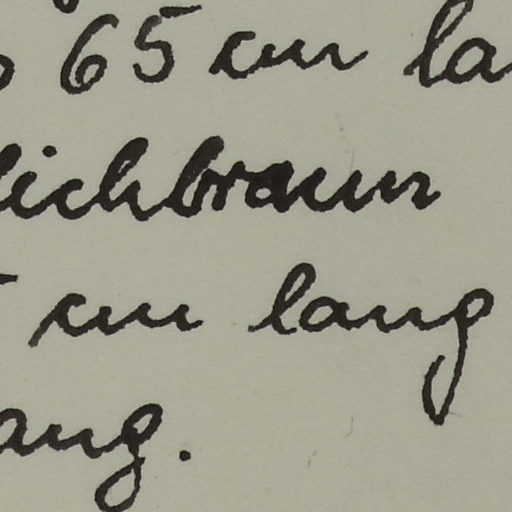 65 cm la
lichbraun
cm lang
ang.